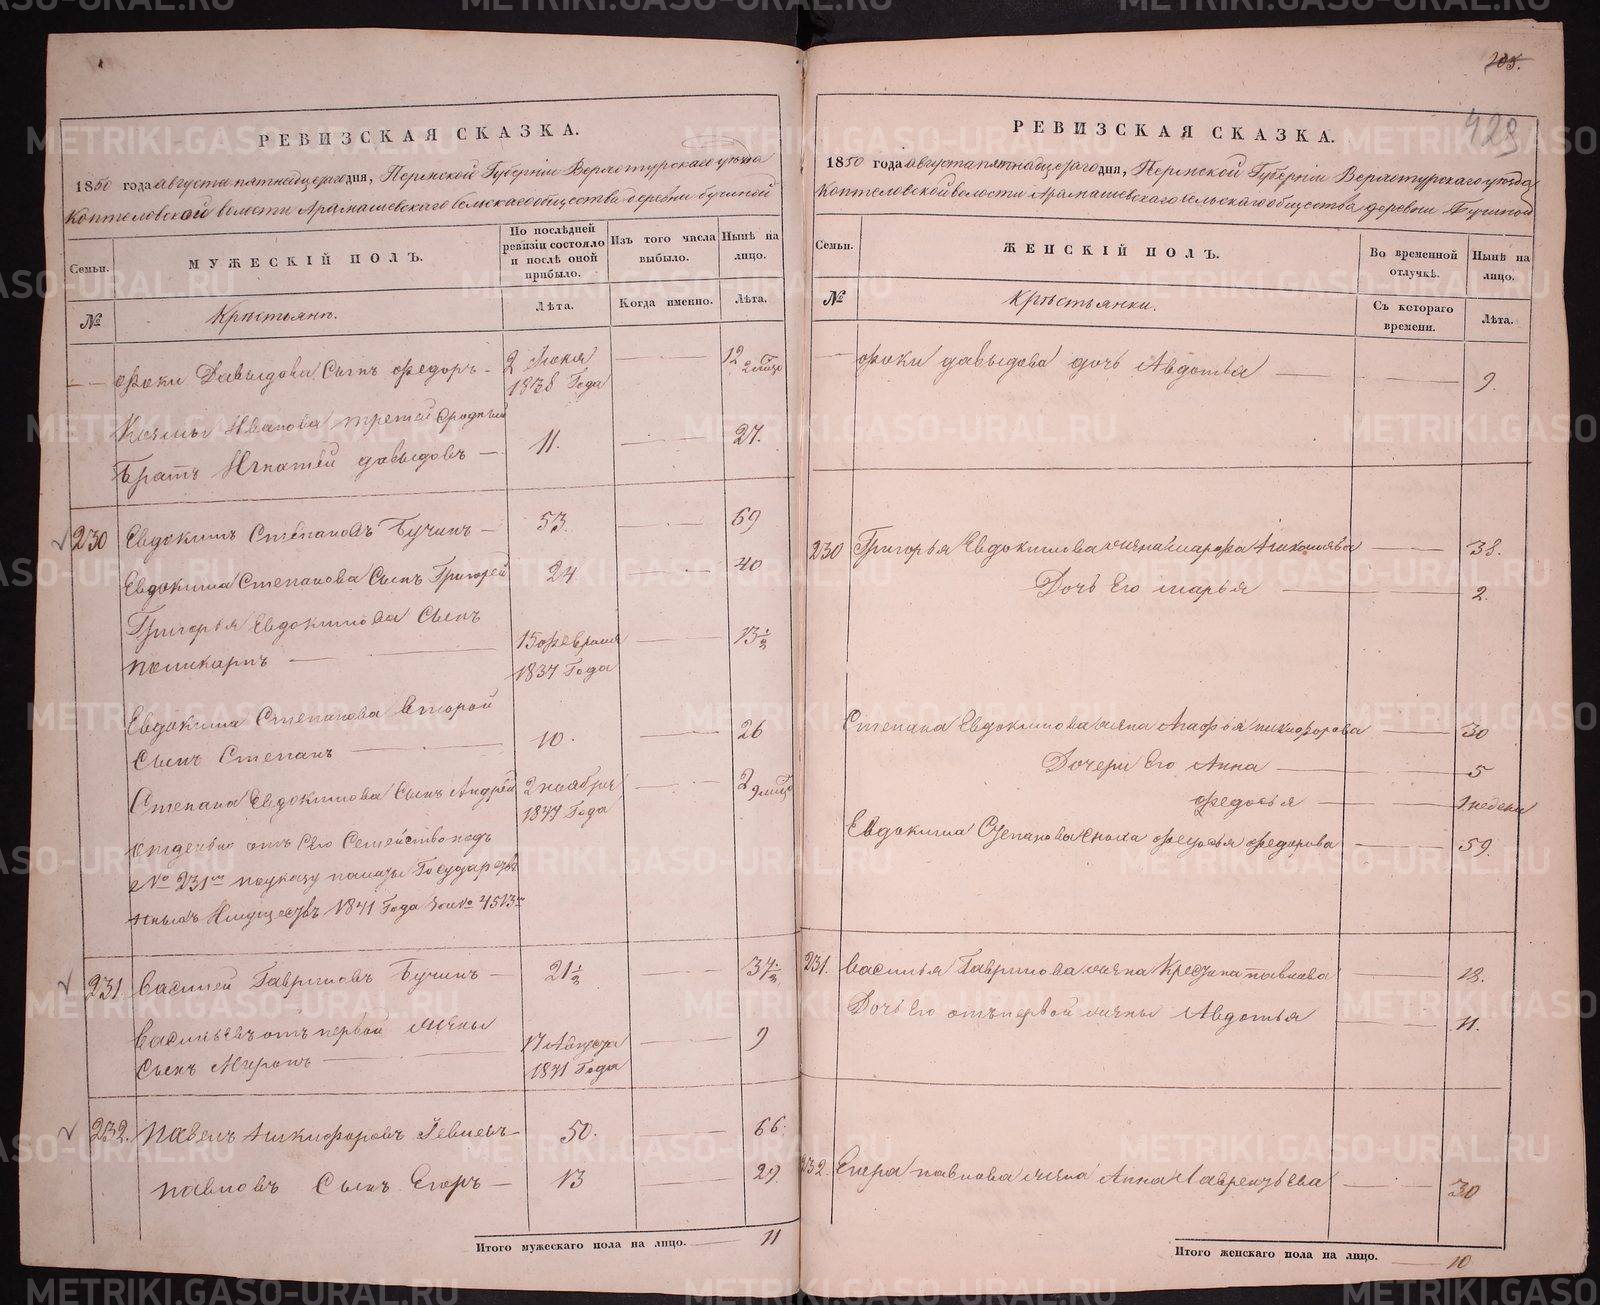 205.
423
РЕВИЗСКАЯ СКАЗКА.
1850 года августа пятнадцатаго дня, Пермской Губерніи Верхотурскаго уезда
Коптеловской волости Арамашевскаго сельскаго общества деревни Бучиной
Семьи.
МУЖЕСКІЙ ПОЛЪ.
По послѣдней ревизіи состояло и послѣ оной прибыло.
Изъ того числа выбыло.
Нынѣ на лицо.
№
Крестьянъ.
Лѣта.
Когда именно.
Лѣта.
Фоки Давыдова Сынъ Федоръ - 2 Июня 1838 Года 12 2 мѣся
Козмы Иванова третей Сродный
Братъ Игнатей Давыдовъ - 11. 27.
230 Евдокимъ Степановъ Бучинъ - 53. 69
Евдокима Степанова Сынъ Григорей 24 40
Григорья Евдокимова Сынъ
Поликарпъ 15 февраля 1837 Года 13 1/2
Евдокима Степанова второй
Сынъ Степанъ 10. 26
Степана Евдокимова Сынъ Андрей 2 ноября 1847 Года 2 9 мѣся
отделено отъ Сего Семейства подъ
№ 231м по указу палаты Государств
нныхъ Имуществъ 1841 Года За № 4513м
231 Василей Гавриловъ Бучинъ - 21 1/2 37 1/2
Васильевъ отъ первой жены
Сынъ Миронъ 17 Августа 1841 Года 9
232. Павелъ Никифоровъ Левинъ - 50. 66.
Павловъ Сынъ Егоръ - 13 29.
Итого мужескаго пола на лицо. 11
РЕВИЗСКАЯ СКАЗКА.
1850 года августа пятнадцатаго дня, Пермской Губерніи Верхотурскаго уезда
Коптеловской волости Арамашевскаго сельскаго общества деревни Бучиной
Семьи.
ЖЕНСКІЙ ПОЛЪ.
Во временной отлучкѣ.
Нынѣ на лицо.
№
Крестьянки.
Съ котораго времени.
Лѣта.
Фоки Давыдова дочь Авдотья 9.
230 Григорья Евдокимова жена Марфа 38.
Дочь Его Марья 2.
Степана Евдокимова жена Агафья Никифорова 30
Дочери Его Анна 5
Федосья 1 недели
Евдокима Степанова Федорова 59.
231. Василья Гаврилова жена Павлова
Дочь Его отъ первой жены Авдотья 11.
232. Егора Павлова жена Анна Лаврентьева 30
Итого женскаго пола на лицо. 10
METRIKI.GASO-URAL.RU